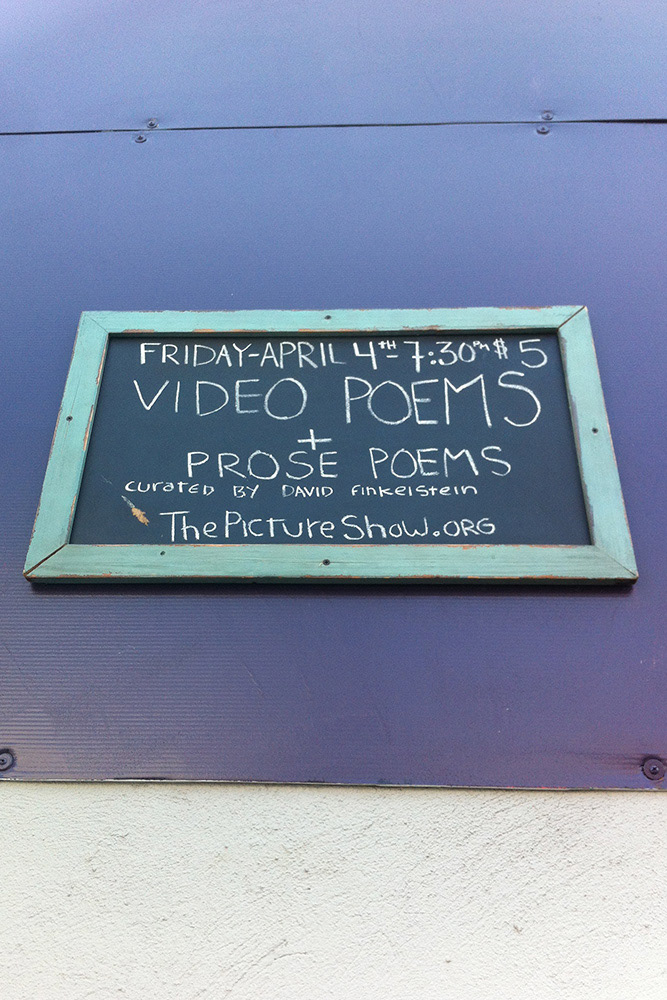 FRIDAY-APRIL 4TH-7:30PM $5
VIDEO POEMS
+
PROSE POEMS
CURATED BY DAVID FINKELSTEIN
THEPICTURESHOW.ORG